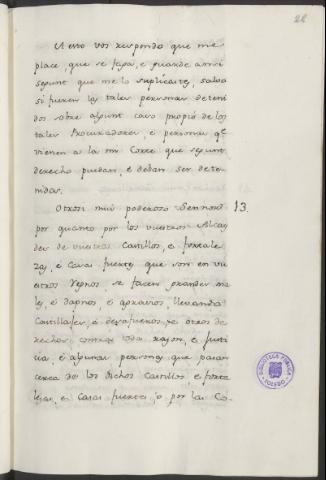 22
A esto vos respondo que me
place, que se faga, é guarde ansi
segunt que me lo suplicaste, salvo
si fueren los tales personas deteni
dos sobre algunt caso propio de los
tales Procuradores, é personas qe
vienen a la mi Corte que segunt
derecho puedan, é deban ser dete-
nidas.
Otrosi mui poderoso Sennor 13.
por quanto por los vuestros Alcay
des de vuestros Castillos, é fortale
zas, é Casas fuertes que son en vu
estros Regnos, se facen grandes ma
les, é dapnos, é agravios llevando
Castillages, é desafueros, é otros de
rechos contra toda razon, é justi
cia, é algunas personas que pasan
cerca de los dichos Castillos, é forta
lezas, é Casas fuertes, o por las Co-
BIBLIOTECA PUBLICA
TOLEDO